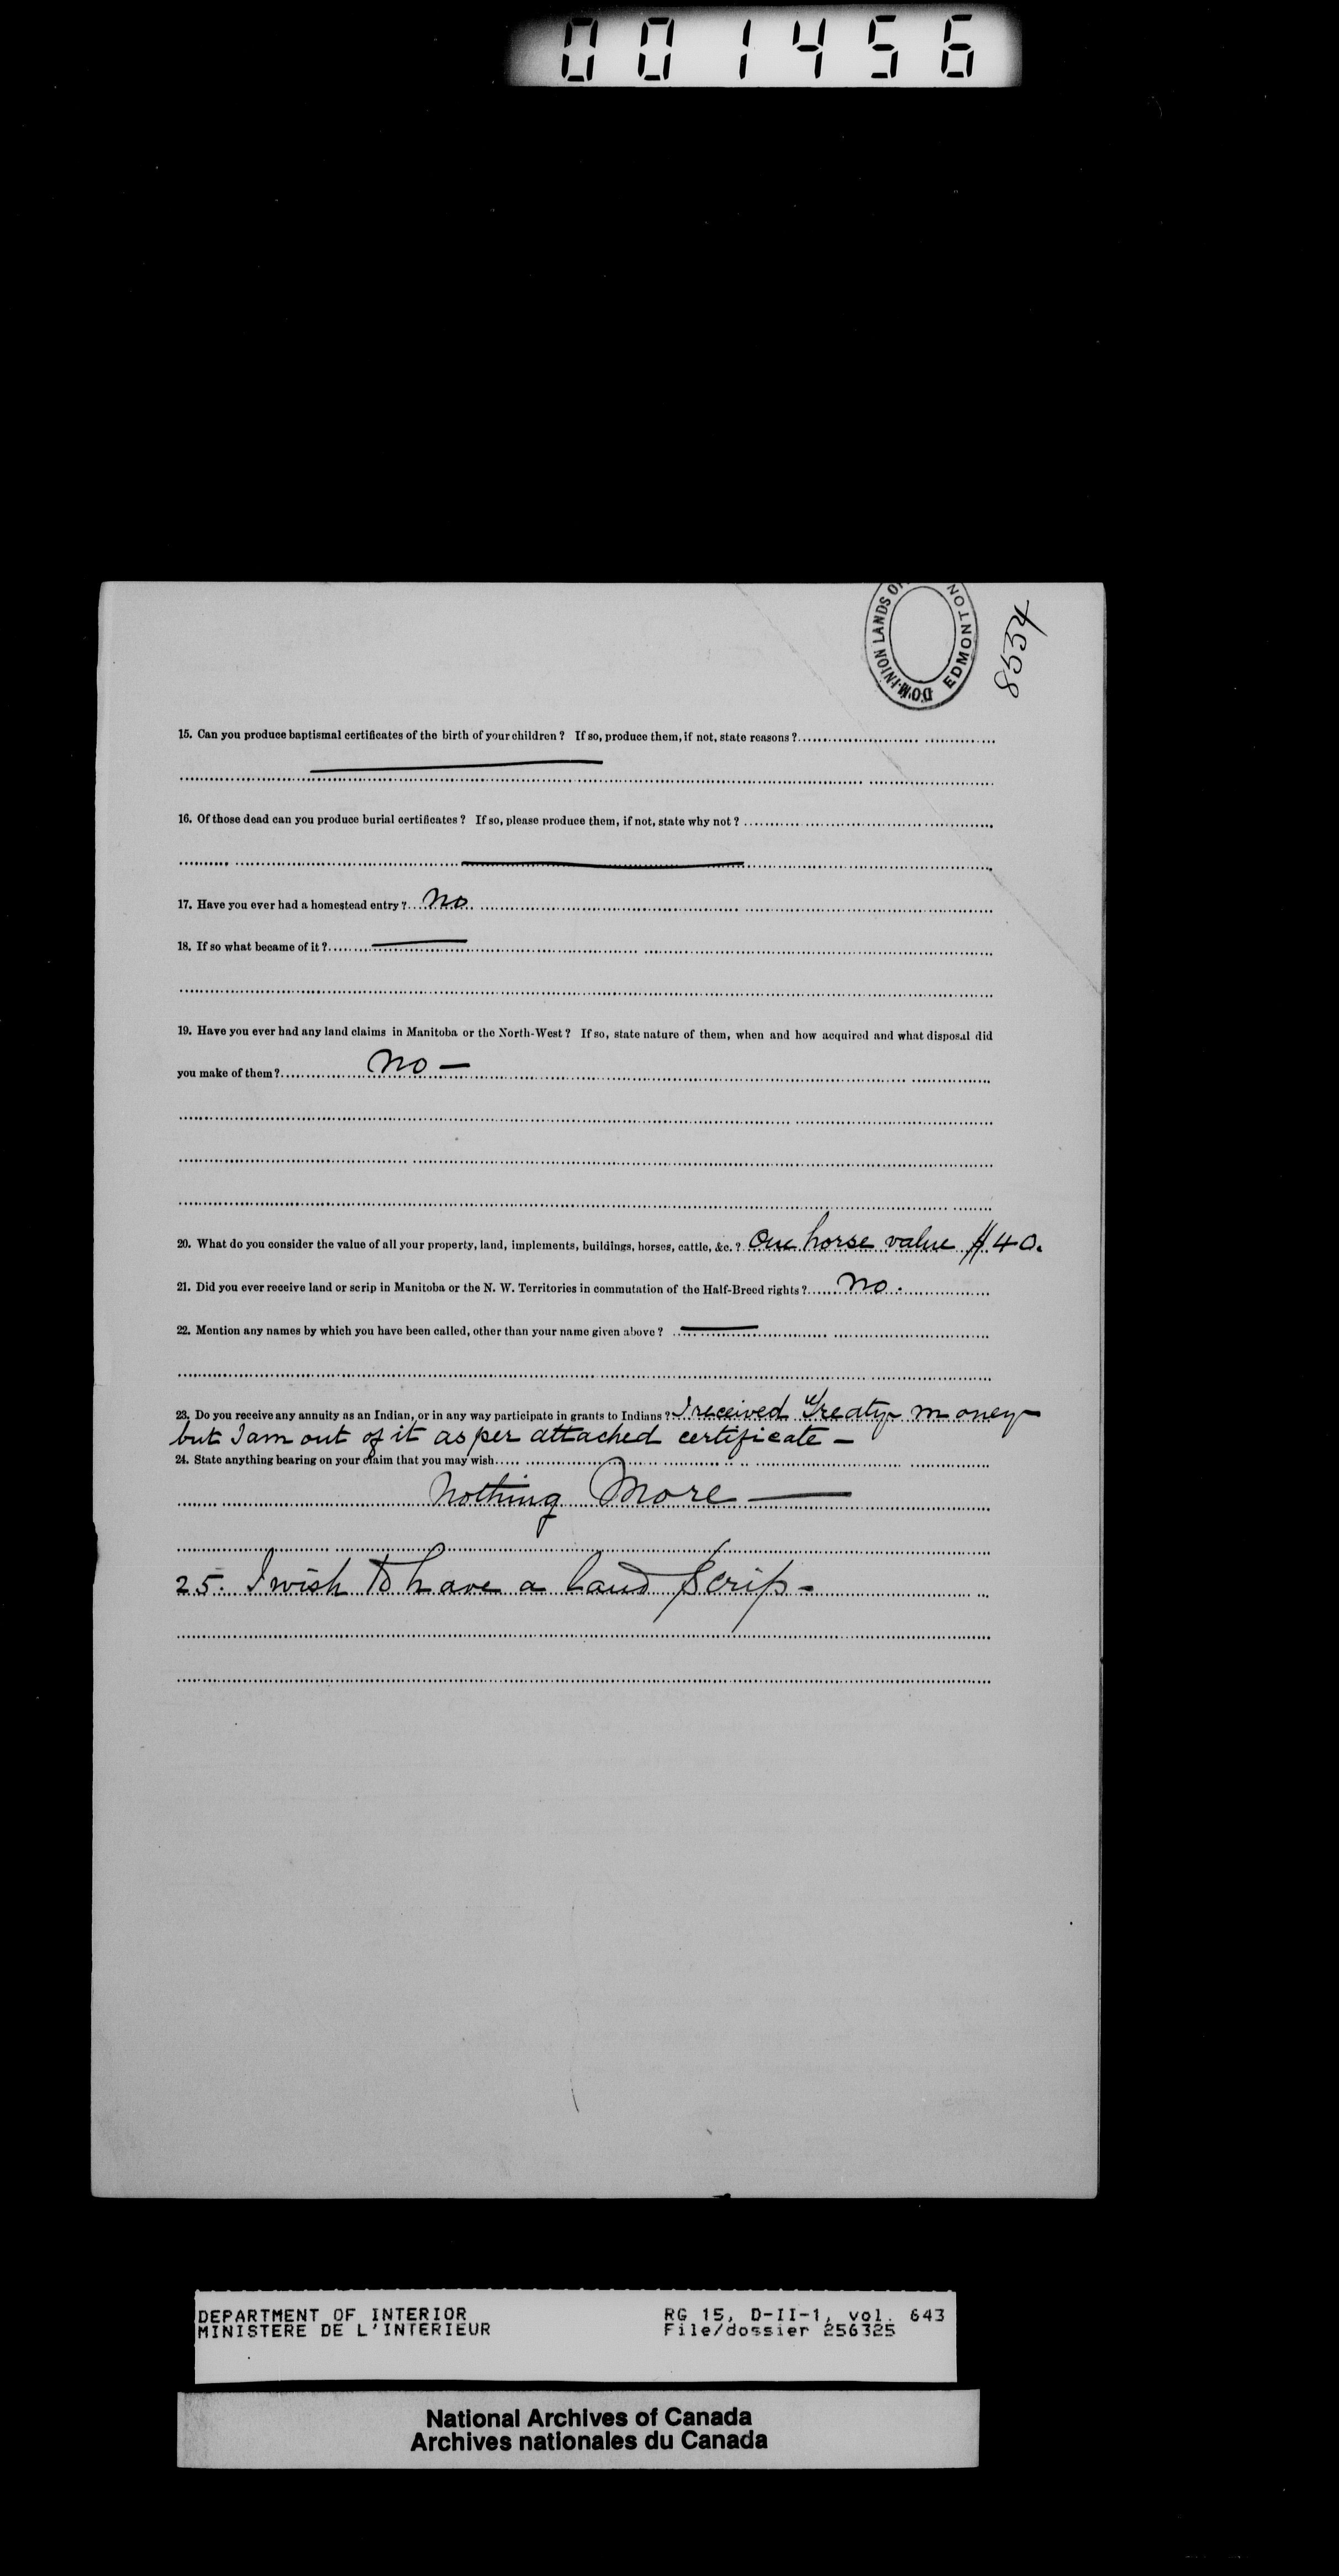 001456
DOMINION LANDS OF
EDMONTON
8554
15. Can you produce baptismal certificates of the birth of your children? If so, produce them, if not, state reasons?
16. Of those dead can you produce burial certificates? If so, please produce them, if not, state why not?
17. Have you ever had a homestead entry? No
18. If so what became of it?
19. Have you ever had any land claims in Manitoba or the North-West? If so, state nature of them, when and how acquired and what disposal did
you make of them? No —
20. What do you consider the value of all your property, land, implements, buildings, horses, cattle, &c.? One horse value $40.
21. Did you ever receive land or scrip in Manitoba or the N. W. Territories in commutation of the Half-Breed rights? No.
22. Mention any names by which you have been called, other than your name given above? —
23. Do you receive any annuity as an Indian, or in any way participate in grants to Indians? I received Treaty money
but I am out of it as per attached certificate —
24. State anything bearing on your claim that you may wish
Nothing More —
25. I wish to have a land scrip -
DEPARTMENT OF INTERIOR RG 15, D-II-1, vol. 643
MINISTERE DE L'INTERIEUR File/dossier 256325
National Archives of Canada
Archives nationales du Canada